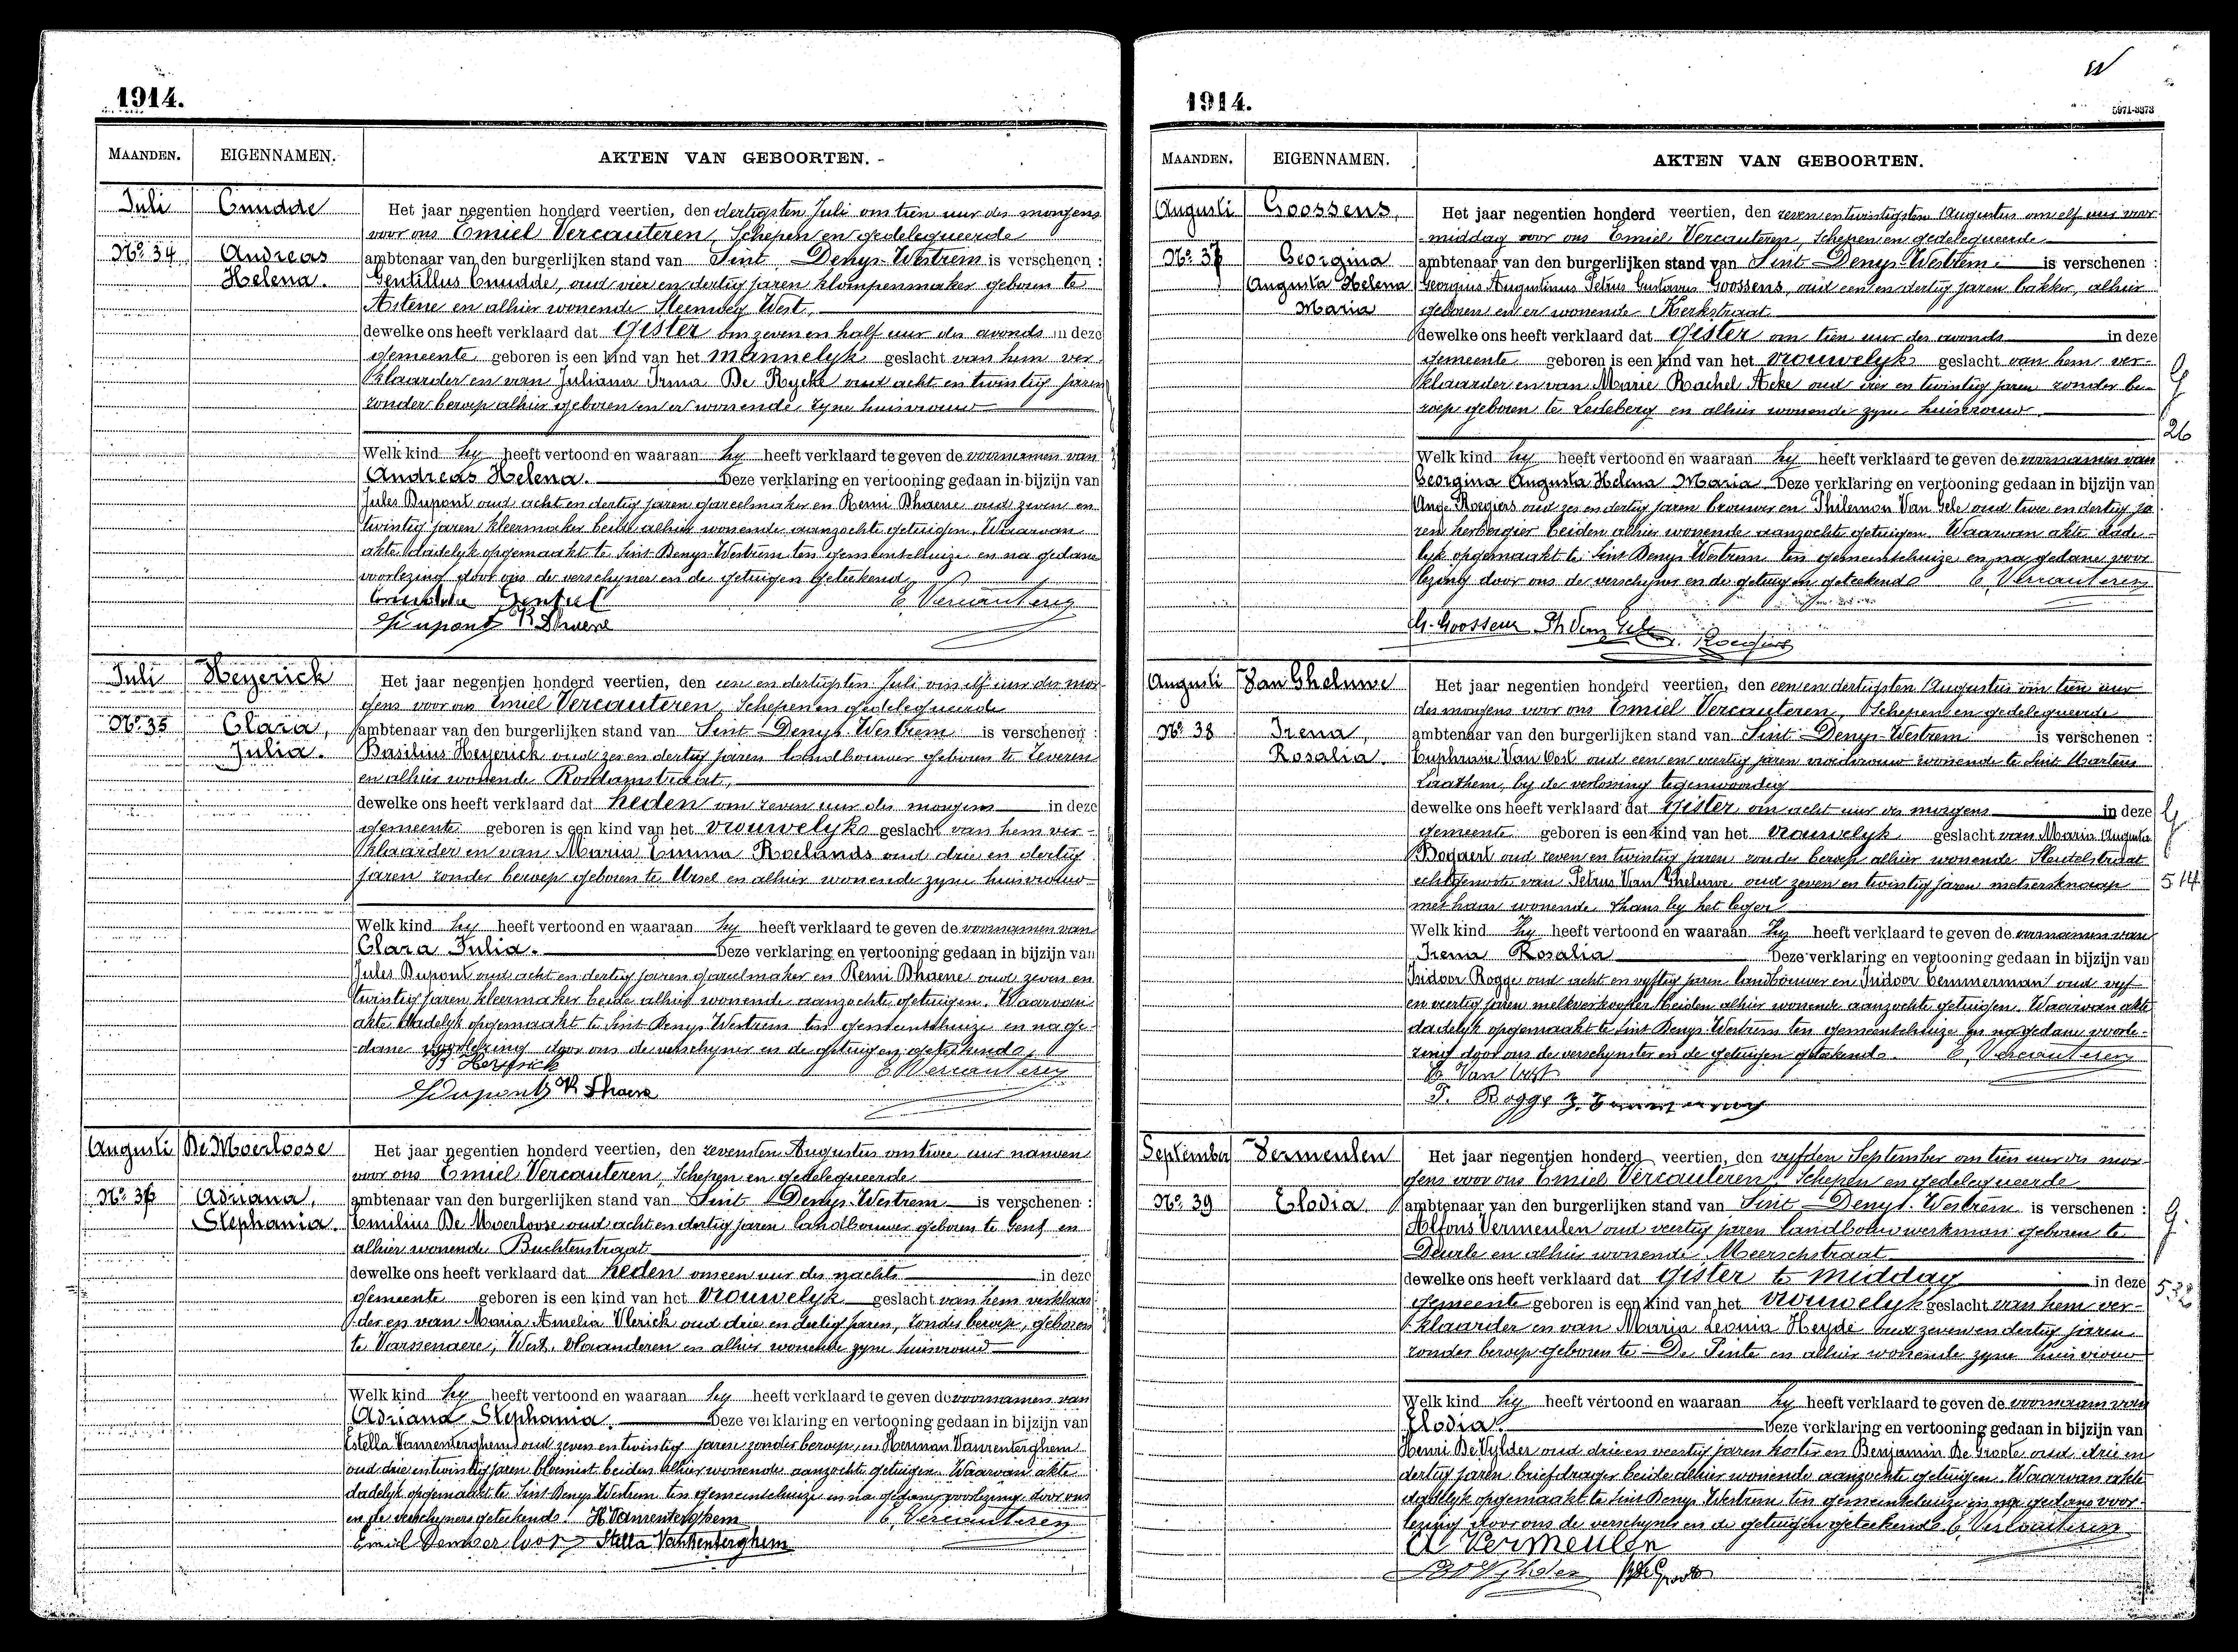 1914.
MAANDEN. EIGENNAMEN. AKTEN VAN GEBOORTEN.
Juli Cnudde Het jaar negentien honderd veertien, den dertigsten Juli om tien uur des morgens
voor ons Emiel Vercauteren, Schepen en gedelegueerde
No. 34 Andreas ambtenaar van den burgerlijken stand van Sint Denys-Westrem is verschenen :
Helena. Gentillus Cnudde, oud vier en dertig jaren klompenmaker geboren te
Astene en alhier wonende Steenweg West,
dewelke ons heeft verklaard dat gister om zeven en half uur des avonds in deze
gemeente geboren is een kind van het mannelyk geslacht van hem ver-
klaarder en van Juliana Irma De Rycke oud acht en twintig jaren
zonder beroep alhier geboren en er wonende, zyne huisvrouw
Welk kind hy heeft vertoond en waaraan hy heeft verklaard te geven de voornamen van
Andreas Helena. Deze verklaring en vertooning gedaan in bijzijn van
Jules Dupont oud acht en dertig jaren gareelmaker en Remi Dhaene oud zeven en
twintig jaren kleermaker beide alhier wonende aanzochte getuigen. Waarvan
akte dadelyk opgemaakt te Sint Denys-Westrem ten gemeentehuize en na gedane
voorlezing door ons de verschyner en de getuigen geteekend,
Cnudde Gentiel E. Vercauteren
J Dupont R Dhaene
Juli Heyerick Het jaar negentien honderd veertien, den een en dertigsten Juli om elf uur des mor-
gens voor ons Emiel Vercauteren, Schepen en gedelegueerde
No. 35 Clara, ambtenaar van den burgerlijken stand van Sint Denys-Westrem is verschenen :
Julia. Basilius Heyerick oud zes en dertig jaren landbouwer geboren te Zeveren
en alhier wonende Rosdamstraat,
dewelke ons heeft verklaard dat heden om zeven uur des morgens in deze
gemeente geboren is een kind van het vrouwelyk geslacht van hem ver-
klaarder en van Maria Emma Roelands oud drie en dertig
jaren zonder beroep geboren te Ursel en alhier wonende zyne huisvrouw
Welk kind hy heeft vertoond en waaraan hy heeft verklaard te geven de voornamen van
Clara Julia. Deze verklaring en vertooning gedaan in bijzijn van
Jules Dupont oud acht en dertig jaren gareelmaker en Remi Dhaene oud zeven en
twintig jaren kleermaker beide alhier wonende aanzochte getuigen. Waarvan
akte dadelyk opgemaakt te Sint Denys-Westrem ten gemeentehuize en na ge-
dane voorlezing door ons de verschyner en de getuigen geteekend,
B Heyerick E Vercauteren
J Dupont R Dhaene
Augusti De Moerloose Het jaar negentien honderd veertien, den zevensten Augustus om twee uur namen
voor ons Emiel Vercauteren, Schepen en gedelegueerde
No. 36 Adriana, ambtenaar van den burgerlijken stand van Sint Denys-Westrem is verschenen :
Stephania. Emilius De Moerloose oud acht en dertig jaren landbouwer geboren te Gent en
alhier wonende Buchtenstraat
dewelke ons heeft verklaard dat heden om een uur des nachts in deze
gemeente geboren is een kind van het vrouwelyk geslacht van hem verklaar-
der en van Maria Amelia Vlerick oud drie en dertig jaren, zonder beroep, geboren
te Varssenaere, West. Vlaanderen en alhier wonende zyne huisvrouw
Welk kind hy heeft vertoond en waaraan hy heeft verklaard te geven de voornamen van
Adriana Stephania. Deze verklaring en vertooning gedaan in bijzijn van
Estella Vanrenterghem oud zeven en twintig jaren zonder beroep, en Herman Vanrenterghem
oud drie en twintig jaren bloemist beiden alhier wonende aanzochte getuigen. Waarvan akte
dadelyk opgemaakt te Sint Denys Westrem ten gemeentehuize en na gedane voorlezing door ons
en de verschyners geteekend. H Vanrenterghem E. Vercauteren
Emiel Demoerloose Stella Vanrenterghem
1914.
5971-3373
MAANDEN. EIGENNAMEN. AKTEN VAN GEBOORTEN.
Augusti Goossens, Het jaar negentien honderd veertien, den zeven en twintigsten Augustus om elf uur voor-
middag voor ons Emiel Vercauteren, Schepen en gedelegueerde
No. 37 Georgina ambtenaar van den burgerlijken stand van Sint-Denys-Westrem is verschenen :
Augusta Helena Georgius Augustinus Petrus Gustavus Goossens, oud een en dertig jaren bakker, alhier
Maria geboren en er wonende Kerkstraat
dewelke ons heeft verklaard dat gister om tien uur des avonds in deze
gemeente geboren is een kind van het vrouwelyk geslacht van hem ver-
klaarder en van Marie Rachel Acke oud vier en twintig jaren zonder be-
roep geboren te Ledeberg en alhier wonende zyne huisvrouw
26
Welk kind hy heeft vertoond en waaraan hy heeft verklaard te geven de voornamen van
Georgina Augusta Helena Maria Deze verklaring en vertooning gedaan in bijzijn van
Ange Roegiers oud zes en dertig jaren brouwer en Philemon Van Gele oud twee en dertig ja-
ren herbergier beiden alhier wonende aanzochte getuigen. Waarvan akte dade-
lyk opgemaakt te Sint Denys Westrem ten gemeentehuize en na gedane voor-
lezing door ons de verschyner en de getuigen geteekend E. Vercauteren
G. Goossens Ph Van Gele A. Roegiers
Augusti Van Gheluwe Het jaar negentien honderd veertien, den een en dertigsten Augustus om tien uur
des morgens voor ons Emiel Vercauteren, Schepen en gedelegueerde
No. 38 Irena, ambtenaar van den burgerlijken stand van Sint-Denys-Westrem is verschenen :
Rosalia. Euphrasie Van Oost oud een en veertig jaren vroedvrouw wonende te Sint Martens
Laathem, by de verlossing tegenwoordig
dewelke ons heeft verklaard dat gister om acht uur des morgens in deze
gemeente geboren is een kind van het vrouwelyk geslacht van Maria Augusta
Bogaert oud zeven en twintig jaren zonder beroep alhier wonende Sleutelstraat
echtgenoote van Petrus Van Gheluwe oud zeven en twintig jaren metsersknaap 514
met haar wonende thans by het leger
Welk kind zy heeft vertoond en waaraan zy heeft verklaard te geven de voornamen van
Irena Rosalia Deze verklaring en vertooning gedaan in bijzijn van
Isidoor Rogge oud acht en vyftig jaren landbouwer en Isidoor Temmerman oud vyf
en veertig jaren melkverkooper beiden alhier wonende aanzochte getuigen. Waarvan akte
dadelyk opgemaakt te Sint Denys-Westrem ten gemeentehuize en na gedane voorle-
zing door ons de verschynster en de getuigen geteekend. E. Vercauteren
E Van Oost
I. Rogge
September Vermeulen Het jaar negentien honderd veertien, den vyfden September om tien uur des mor-
gens voor ons Emiel Vercauteren, Schepen en gedelegueerde
No. 39 Elodia ambtenaar van den burgerlijken stand van Sint-Denys-Westrem is verschenen :
Alfons Vermeulen oud veertig jaren landbouwwerkman geboren te
Deurle en alhier wonende Meerschstraat
dewelke ons heeft verklaard dat gister te middag in deze
gemeente geboren is een kind van het vrouwelyk geslacht van hem ver- 532
klaarder en van Maria Leonia Heyde oud zeven en dertig jaren
zonder beroep geboren te De Pinte en alhier wonende zyne huisvrouw
Welk kind hy heeft vertoond en waaraan hy heeft verklaard te geven de voornaam van
Elodia. Deze verklaring en vertooning gedaan in bijzijn van
Henri De Vylder oud drie en veertig jaren koster en Benjamin De Groote oud drie en
dertig jaren briefdrager beide alhier wonende aanzochte getuigen. Waarvan akte
dadelyk opgemaakt te Sint Denys Westrem ten gemeentehuize en na gedane voor-
lezing door ons de verschyner en de getuigen geteekend. E. Vercauteren
A Vermeulen
De Vylder B De Groote